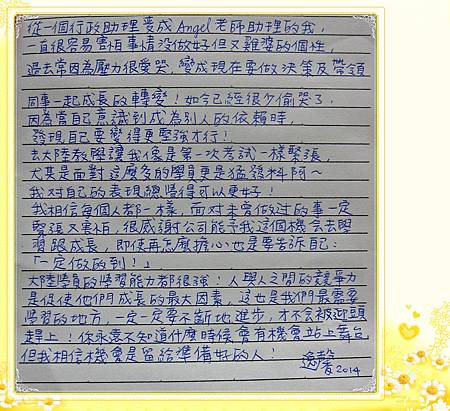 從一個行政助理變成Angel老師助理的我,
一直很容易害怕事情沒做好但又雞婆的個性,
過去常因為壓力很愛哭,變成現在要做決策及帶領
同事一起成長的轉變!如今已經很少偷哭了,
因為當自己意識到成為別人的依賴時,
發現自己要變得更堅強才行!
去大陸教學讓我像是第一次考試一樣緊張,
尤其是面對這麼多的學員更是猛發抖阿~
我對自己的表現總覺得可以更好!
我相信每個人都一樣,面對未曾做過的事一定
緊張又害怕,很感謝公司能予我這個機會去學
習跟成長,即使再怎麼擔心也是要告訴自己:
「一定做的到!」
大陸學員的學習能力都很強!人與人之間的競爭力
是促使他們成長的最大因素,這也是我們最需要
學習的地方,一定一定要不斷地進步,才不會被迎頭
趕上!你永遠不知道什麼時候會有機會站上舞台,
但我相信機會是留給準備好的人!
逸馨2014